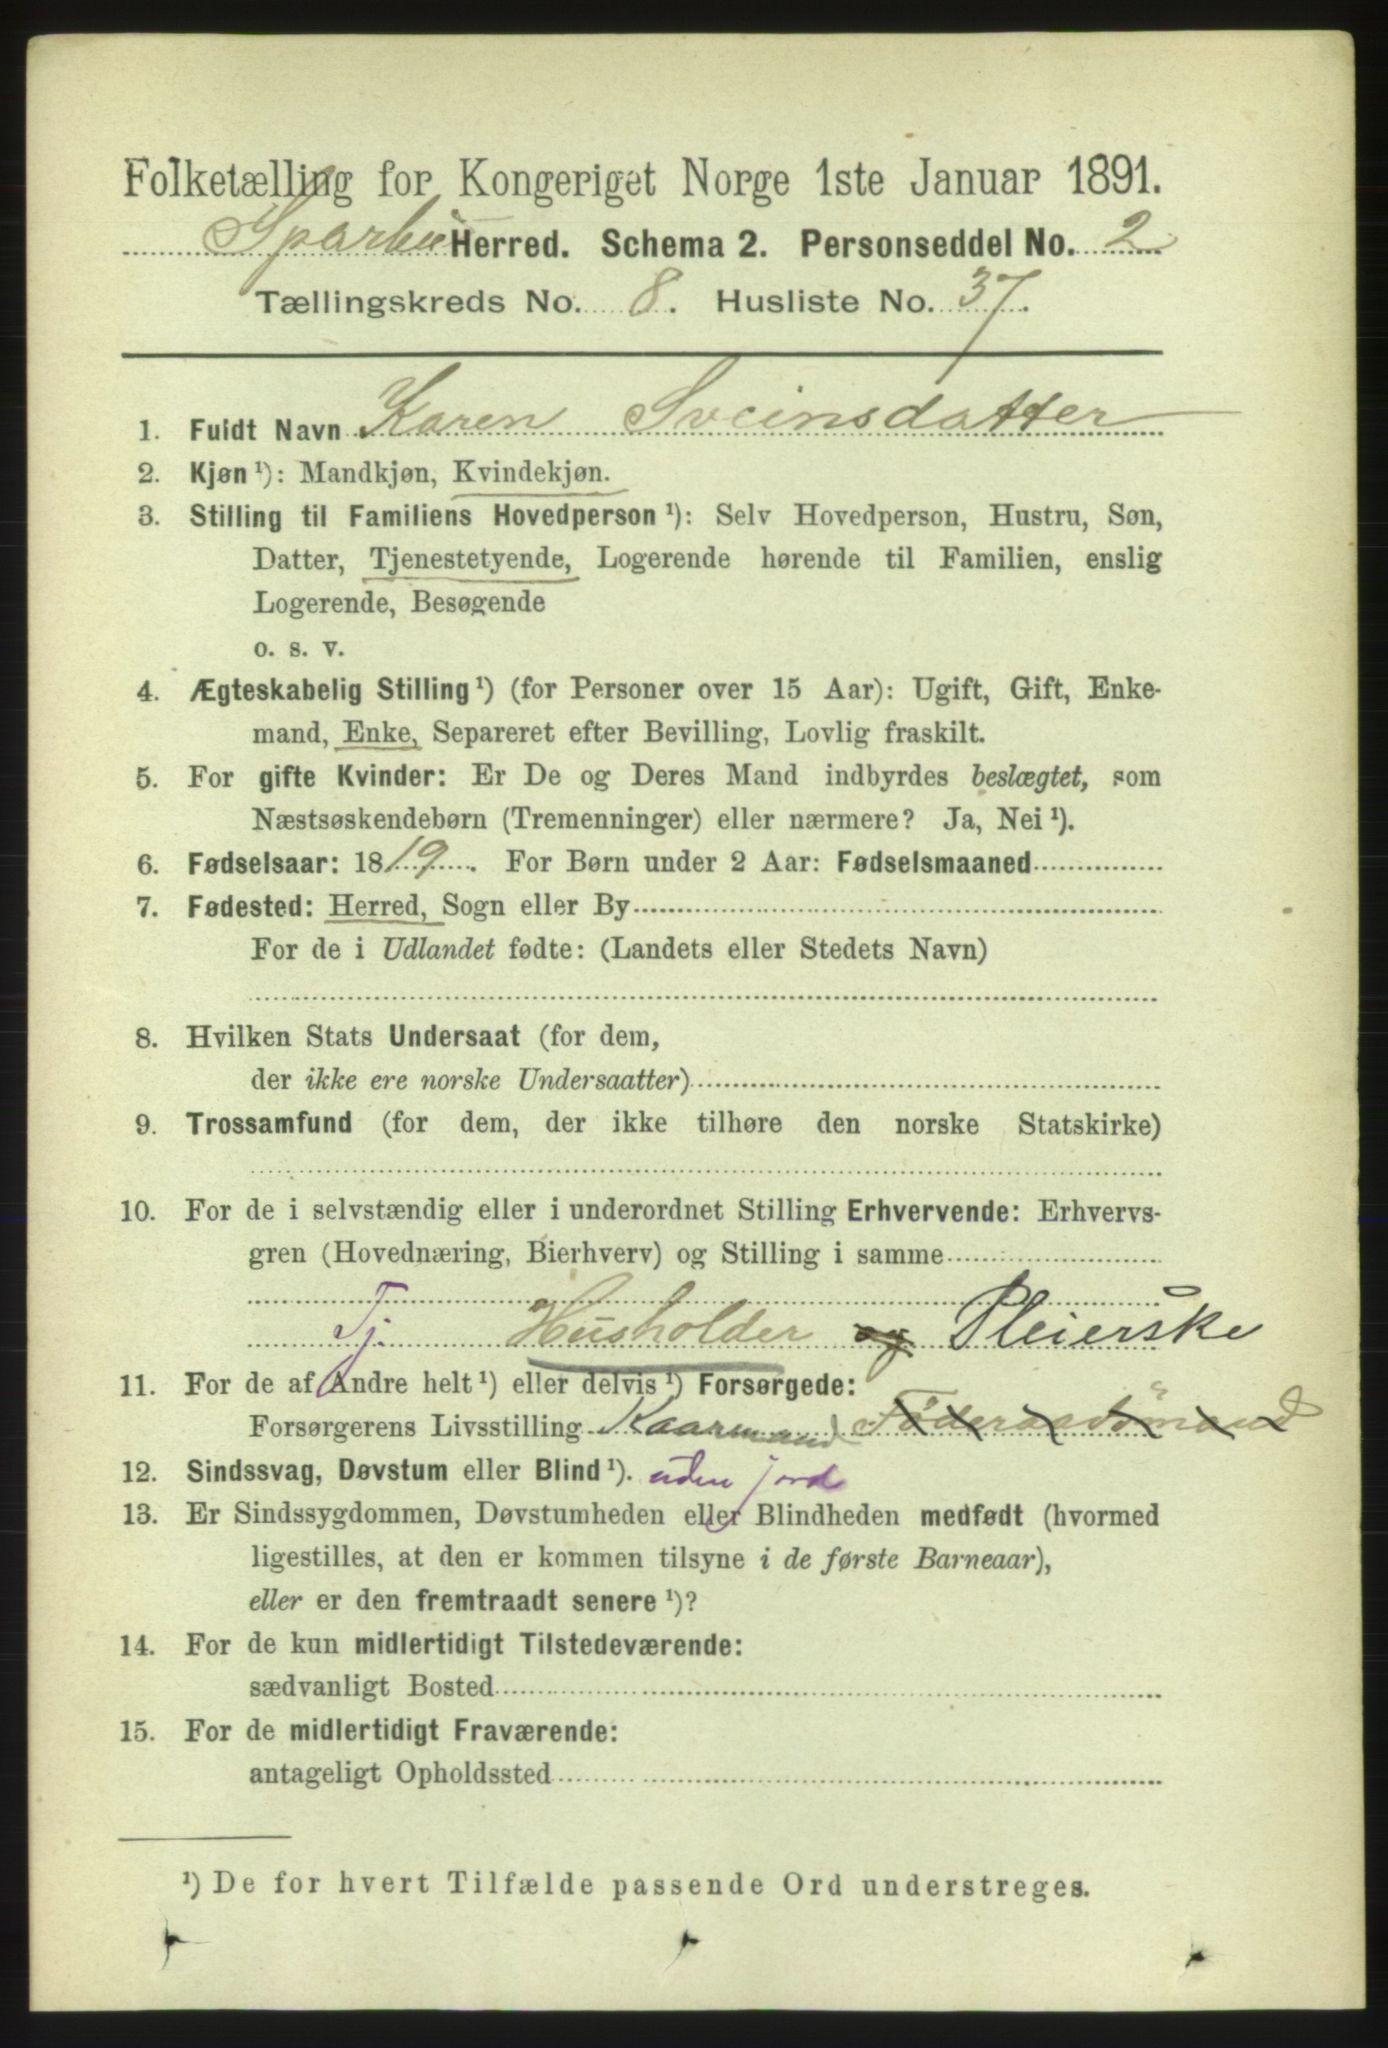 Folketælling for Kongeriget Norge 1ste Januar 1891.
Sparbu Herred. Schema 2. Personseddel No. 2
Tællingskreds No. 8. Husliste No. 37.
1. Fuldt Navn Karen Sveinsdatter
2. Kjøn ¹): Mandkjøn, Kvindekjøn.
3. Stilling til Familiens Hovedperson ¹): Selv Hovedperson, Hustru, Søn,
Datter, Tjenestetyende, Logerende hørende til Familien, enslig
Logerende, Besøgende
o. s. v.
4. Ægteskabelig Stilling ¹) (for Personer over 15 Aar): Ugift, Gift, Enke-
mand, Enke, Separeret efter Bevilling, Lovlig fraskilt.
5. For gifte Kvinder: Er De og Deres Mand indbyrdes beslægtet, som
Næstsøskendebørn (Tremenninger) eller nærmere? Ja, Nei ¹).
6. Fødselsaar: 1819. For Børn under 2 Aar: Fødselsmaaned
7. Fødested: Herred, Sogn eller By
For de i Udlandet fødte: (Landets eller Stedets Navn)
8. Hvilken Stats Undersaat (for dem,
der ikke ere norske Undersaatter)
9. Trossamfund (for dem, der ikke tilhøre den norske Statskirke)
10. For de i selvstændig eller i underordnet Stilling Erhvervende: Erhvervs-
gren (Hovednæring, Bierhverv) og Stilling i samme
Tj. Husholder og Pleierske
11. For de af Andre helt ¹) eller delvis ¹) Forsørgede:
Forsørgerens Livsstilling Kaarmand Føderaadsmand
12. Sindssvag, Døvstum eller Blind ¹). uden jord
13. Er Sindssygdommen, Døvstumheden eller Blindheden medfødt (hvormed
ligestilles, at den er kommen tilsyne i de første Barneaar),
eller er den fremtraadt senere ¹)?
14. For de kun midlertidigt Tilstedeværende:
sædvanligt Bosted
15. For de midlertidigt Fraværende:
antageligt Opholdssted
¹) De for hvert Tilfælde passende Ord understreges.